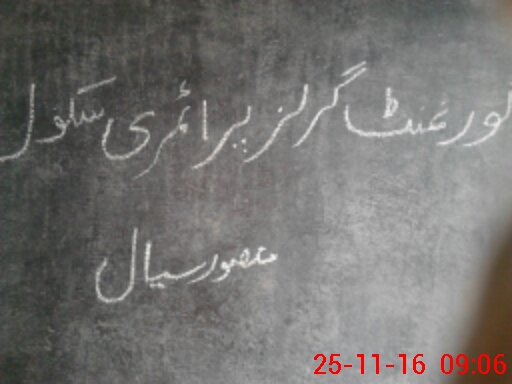 گورنمنٹ گرلز پرائمری سکول
منصور سیال
25-11-16 09:06